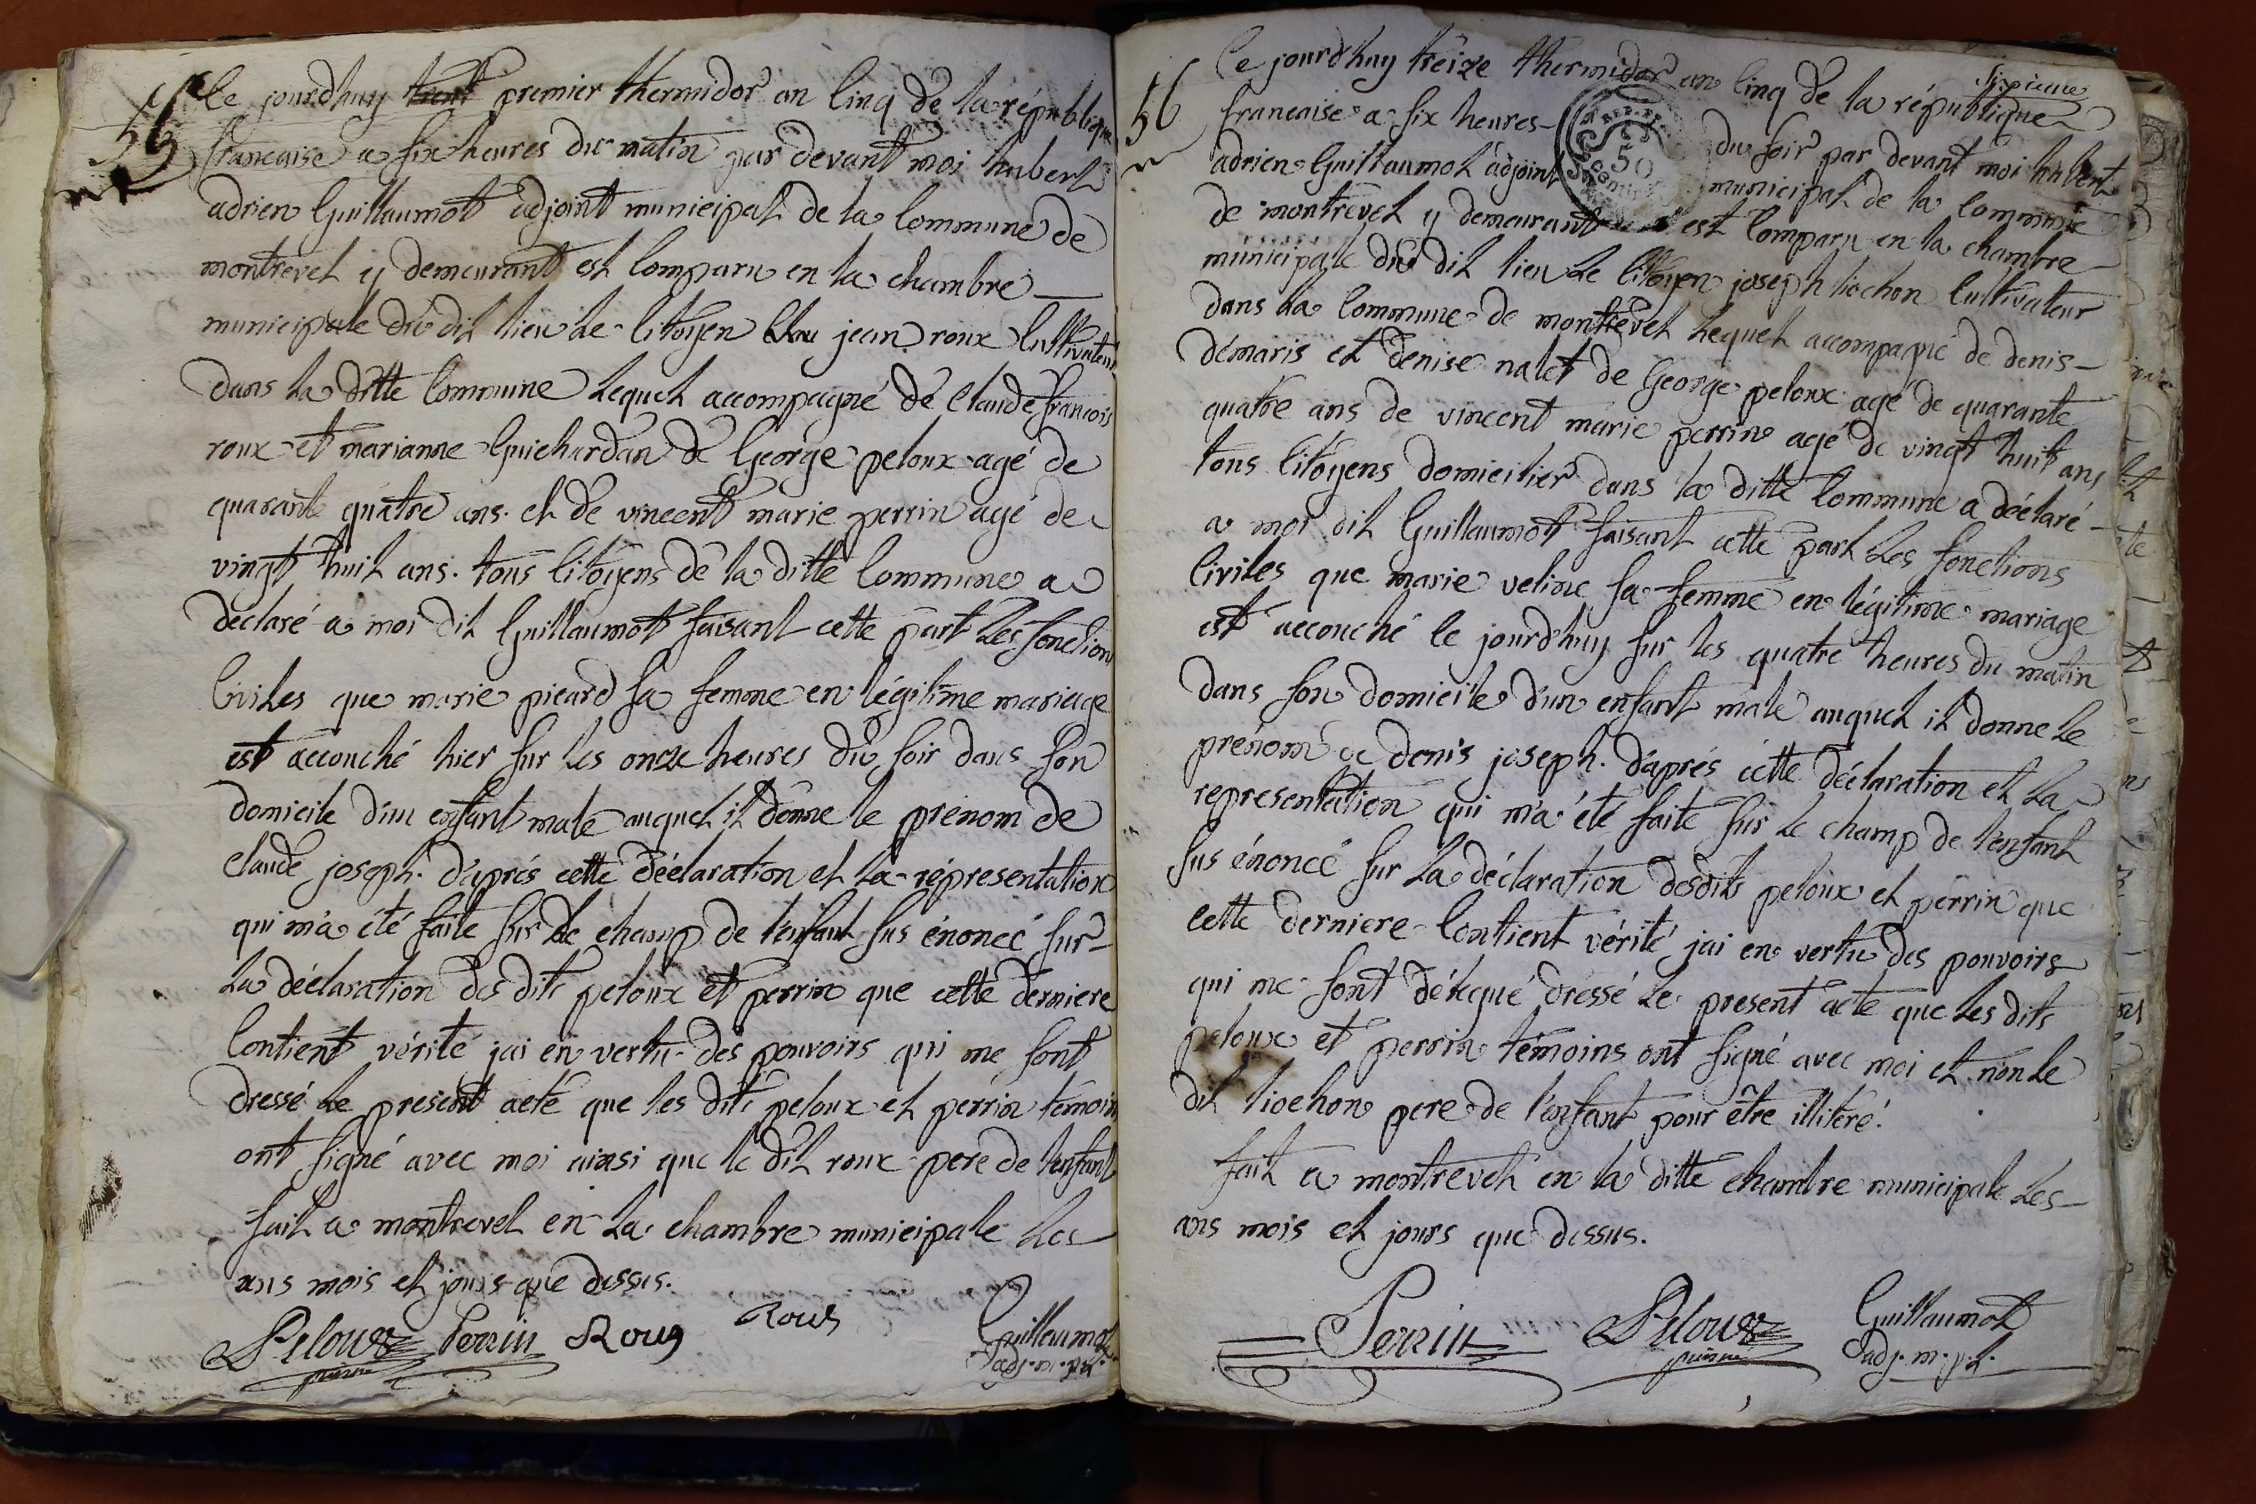 55
le jourdhuy premier thermidor an cinq de la republique
francaise a six heures du matin par devant moi hubert
adrien Guillaumot adjoint municipal de la Commune de
montrevel y demeurant est Comparu en la chambre
municipale du dit lieu le Citoyen jean roux Cultivateur
dans la ditte Commune lequel accompagné de Claude francois
roux et marianne Guichardan de George peloux agé de
quarante quatre ans. et de vincent marie perrin agé de
vingt huit ans. tous Citoyens de la ditte Commune a
déclaré a moi dit Guillaumot faisant cette part les fonction
Civiles que marie picard sa femme en légitime mariage
est accouché hier sur les onze heures du soir dans son
domicile d'un enfant male auquel il donne le prénom de
Claude joseph. d'aprés cette déclaration et la répresentation
qui m'a été faite sur le champ de l'enfant sus énoncé sur
la déclaration des dits peloux et perrin que cette derniere
Contient vérité jai en vertu des pouvoirs qui me sont
dressé le present acte que les dits peloux et perrin témoin
ont signé avec moi ainsi que le dit roux pere de l'enfant
fait a montrevel en la chambre municipale les
ans mois et jours que dessus.
Peloux Perrin Roux Roux Guillaumot
adj. m. pal.
56
Sixieme
le jourd'huy treize thermidor an cinq de la république
francaise a six heures du soir par devant moi hubert
adrien Guillaumot adjoint municipal de la Commune
de montrevel y demeurant est Comparu en la chambre
municipale du dit lieu le Citoyen joseph liochon Cultivateur
dans la Commune de montrevel lequel accompagné de denis
démaris et denise nalet de George peloux agé de quarante
quatre ans de vincent marie perrin agé de vingt huit ans
tous Citoyens domicilier dans la ditte Commune a déclaré
a moi dit Guillaumot faisant cette part les fonctions
Civiles que marie veline sa femme en légitime mariage
est accouché le jourd'huy sur les quatre heures du matin
dans son domicile d'un enfant male auquel il donne le
prénom de denis joseph. d'aprés cette déclaration et la
representation qui m'a été faite sur le champ de l'enfant
sus énoncé sur la déclaration desdits peloux et perrin que
cette derniere Contient vérité jai en vertu des pouvoirs
qui me sont délegué dressé le present acte que les dits
peloux et perrin témoins ont signé avec moi et non le
dit liochon pere de l'enfant pour être illiteré.
fait a montrevel en la ditte chambre municipale les
ans mois et jours que dessus.
Perrin Peloux Guillaumot
adj. m. pal.